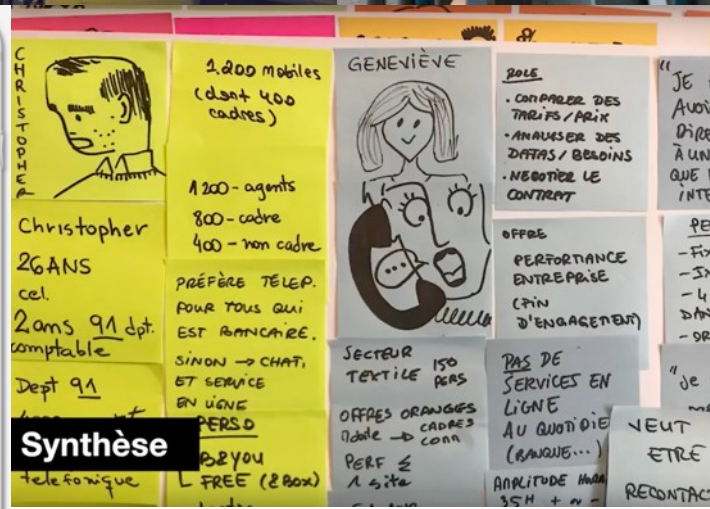 CHRISTOPHER
Christopher
26ANS
cel.
2ans 91 dpt.
comptable
Dept 91
telefonique
Synthèse
1.200 mobiles
(dont 400
cadres)
1200 - agents
800 - cadre
400 - non cadre
PRÉFÈRE TÉLEP.
POUR TOUS QUI
EST BANCAIRE.
SINON → CHAT,
ET SERVICE
EN LIGNE
PERSO
B&YOU
FREE (2Box)
GENEVIÈVE
SECTEUR
TEXTILE 150
PERS
OFFRES ORANGES
Mobile → CADRES
CONN
PERF
1 site
ROLE
• COMPARER DES
TARIFS / PRIX
• ANALYSER DES
DATAS / BESOINS
• NEGOTIER LE
CONTRAT
OFFRE
PERFORMANCE
ENTREPRISE
(FIN
D'ENGAGEMENT)
PAS DE
SERVICES EN
LIGNE
AU QUOTIDIE
(BANQUE...)
AMPLITUDE HORA
35H + ~ -
"JE
QUE
VEUT
ETRE
RECONTAC